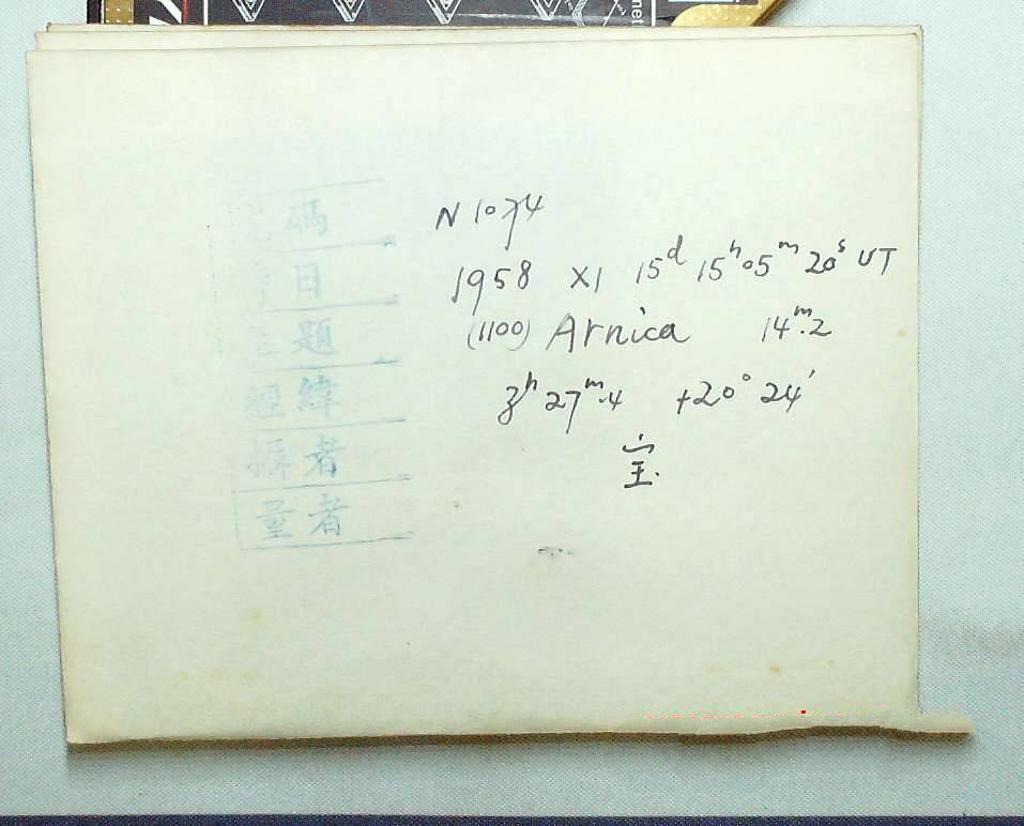 碼
日
題
經緯
攝者
量者
N 1074
1958 XI 15ᵈ 15ʰ05ᵐ20ˢ UT
(1100) Arnica 14ᵐ.2
3ʰ27ᵐ.4 +20° 24′
宝